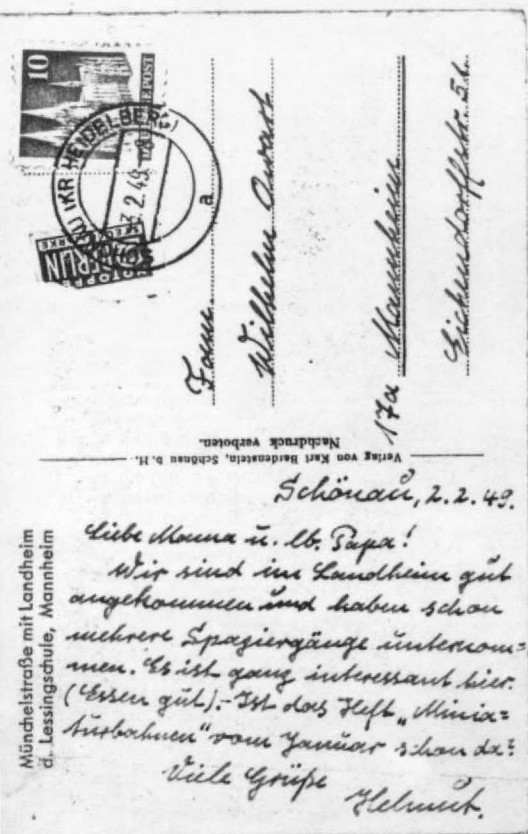 10
POST
(KR HEIDELBERG)
3.2.49
a
NOTOPFER
BERLIN
STEUERMARKE
Fam.
Wilhelm
17a Mannheim
Eichendorffstr. 5
Verlag von Karl Bardenstein, Schönau b. H.
Nachdruck verboten.
Münchelstraße mit Landheim
d. Lessingschule, Mannheim
Schönau, 2.2.49.
Liebe Mama u. lb. Papa!
Wir sind im Landheim gut
angekommen und haben schon
mehrere Spaziergänge unternom=
men. Es ist ganz interessant hier.
(Essen gut).- Ist das Heft „Minia=
turbahnen" vom Januar schon da?
Viele Grüße
Helmut.